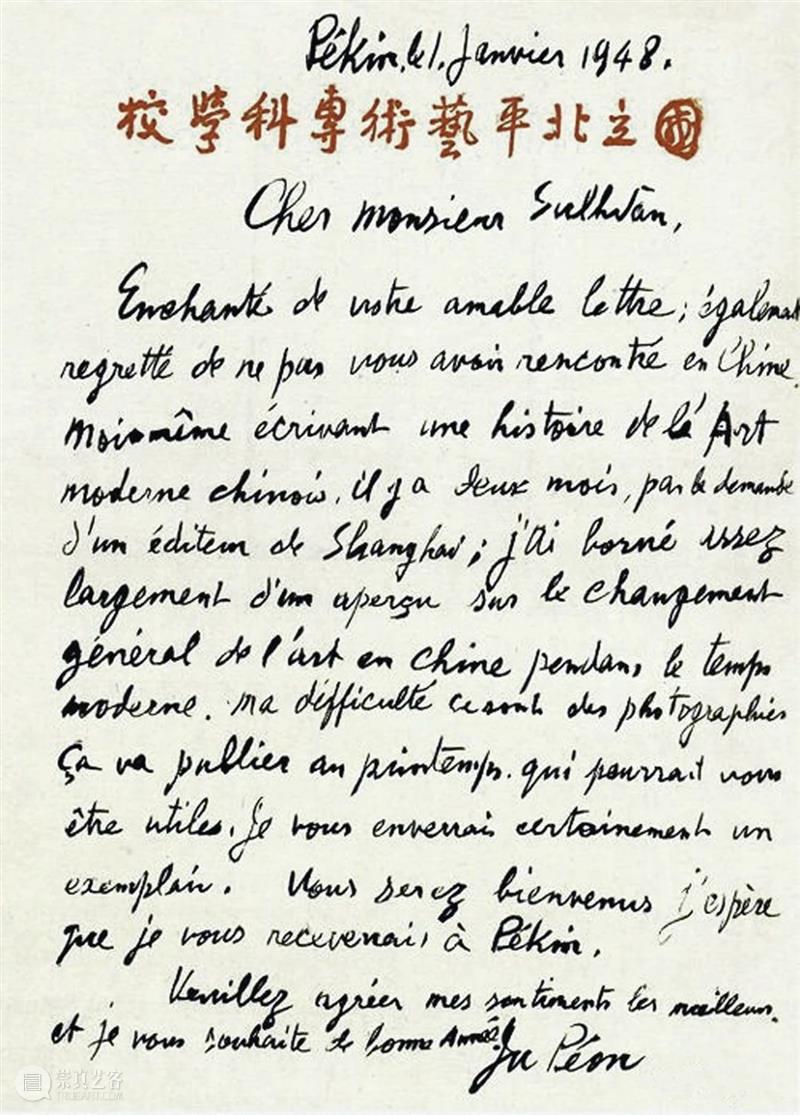 Pékin, le 1. Janvier 1948.
校學科專術藝平北立國
Cher Monsieur Sullivan,
Enchanté de votre amable lettre; également
regretté de ne pas vous avoir rencontré en Chine.
Moi même écrivant une histoire de lé Art
moderne chinois, il y a deux mois, par le demande
d'un éditeur de Shanghai; j'ai borné assez
largement d'un aperçu sur le changement
général de l'art en chine pendans le temps
moderne. ma difficulté ce sont des photographies
Ça va publier au printemps. qui pourrait vous
être utiles. Je vous enverrais certainement un
exemplair. Vous serez bienvenus j'espère
que je vous receverrais à Pékin.
Veuillez agréer mes sentiments les meilleurs.
et je vous souhaite de bonne Année.
Ju Péon
崇真艺客
TRUEART.COM